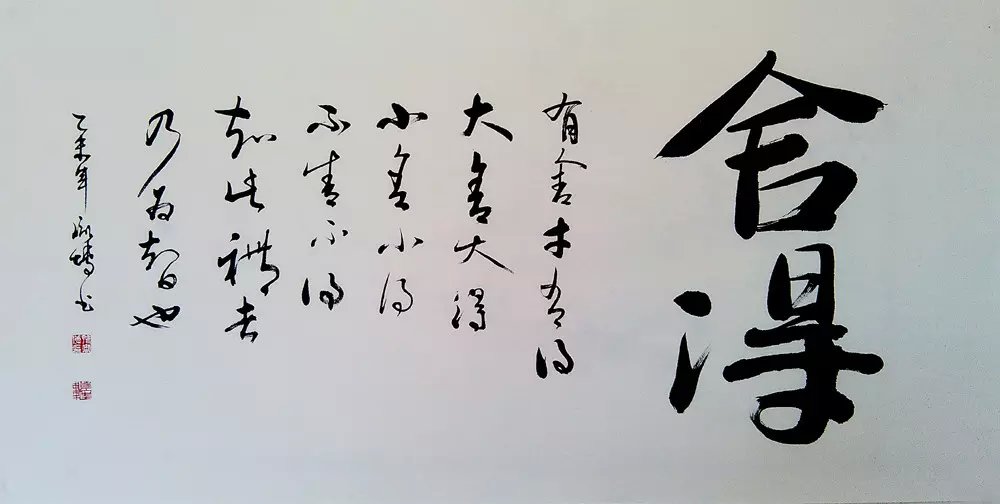 舍得
有舍才有得
大舍大得
小舍小得
不舍不得
知此禮者
乃为智也
乙未年 书